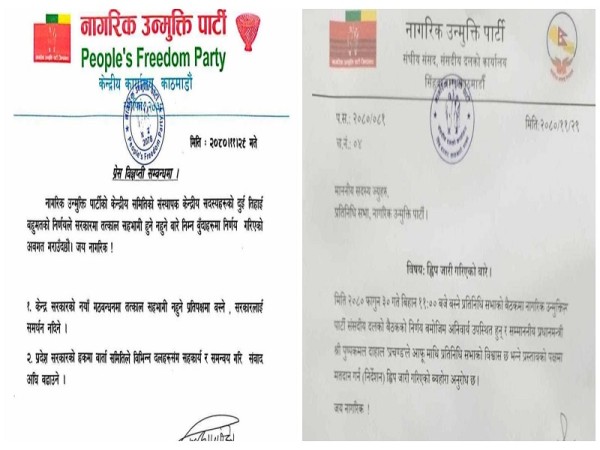 नागरिक उन्मुक्ति पार्टी
People's Freedom Party
केन्द्रीय कार्यालय, काठमाडौँ
मिति : २०८०।११।२९ गते
प्रेस विज्ञप्ती सम्बन्धमा ।
नागरिक उन्मुक्ति पार्टीको केन्द्रीय समितिको संस्थापक केन्द्रीय सदस्यहरूको दुई तिहाई
बहुमतको निर्णयले सरकारमा तत्काल सहभागी हुने नहुने बारे निम्न बुँदाहरूमा निर्णय गरिएको
अवगत गराउँदछौं। जय नागरिक !
१. केन्द्र सरकारको नयाँ गठबन्धनमा तत्काल सहभागी नहुने प्रतिपक्षमा बस्ने , सरकारलाई
समर्थन नदिने ।
२. प्रदेश सरकारको हकमा वार्ता समितिले विभिन्न दलहरूसंग सहकार्य र समन्वय गरि संवाद
अघि बढाउने ।
नागरिक उन्मुक्ति पार्टी
संघीय संसद, संसदीय दलको कार्यालय
सिंहदरबार, काठमाडौं
प.स.: २०८०/०८१
मिति:२०८०/११/२९
च.नं.: ०४
माननीय सदस्य ज्यूहरु,
प्रतिनिधि सभा, नागरिक उन्मुक्ति पार्टी।
विषय: ह्विप जारी गरिएको बारे।
मिति २०८० फागुन ३० गते बिहान ११:०० बजे बस्ने प्रतिनिधि सभाको बैठकमा नागरिक उन्मुक्ति
पार्टी संसदीय दलको बैठकको निर्णय बमोजिम अनिवार्य उपस्थित हुनु र सम्माननीय प्रधानमन्त्री
श्री पुष्पकमल दाहाल 'प्रचण्ड'ले आफू माथि प्रतिनिधि सभाको विश्वास छ भन्ने प्रस्तावको पक्षमा
मतदान गर्न (निर्देशन) ह्विप जारी गरिएको ब्यहोरा अनुरोध छ।
जय नागरिक !